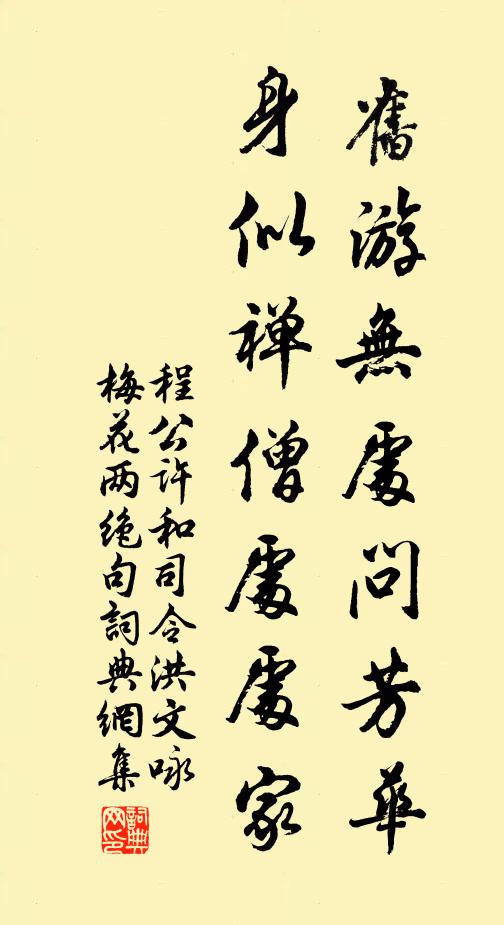 舊游無處問芳華
身似禅僧處處家
程公许和司令洪文咏
梅花两绝句詞典網集
詞典網印